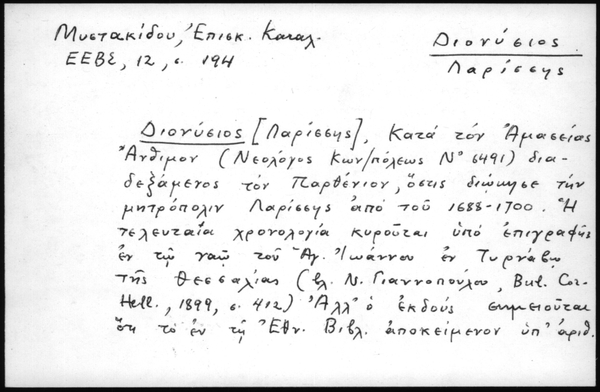 Μυστακίδου, Ἐπισκ. Καταλ.
ΕΕΒΣ, 12, σ. 194
Διονύσιος
Λαρίσσης
Διονύσιος [Λαρίσσης], Κατά τόν Ἀμασείας
Ἄνθιμον (Νεολόγος Κων/πόλεως Νο 6491) δια-
δεξάμενος τόν Παρθένιον, ὅστις διῴκησε τήν
μητρόπολιν Λαρίσσης ἀπό τοῦ 1688-1700. Ἡ
τελευταία χρονολογία κυροῦται ὑπό ἐπιγραφῆς
ἐν τῷ ναῷ τοῦ Ἁγ. Ἰωάννου ἐν Τυρνάβῳ
τῆς Θεσσαλίας (βλ. Ν. Γιαννοπούλου, Bul. Cor.
Hell., 1899, σ. 412) Ἀλλ' ὁ ἐκδούς σημειοῦται
ὅτι τό ἐν τῇ Ἐθν. Βιβλ. ἀποκείμενον ὑπ' ἀριθ.